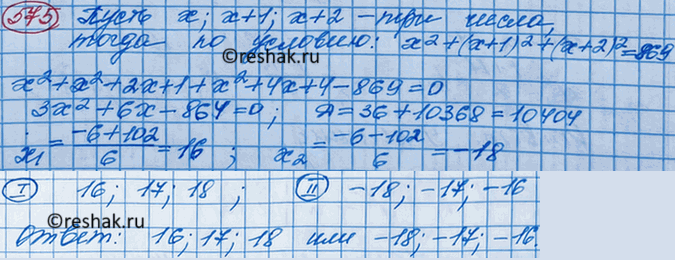 575 Пусть x; x+1; x+2 - три числа,
тогда по условию: x²+(x+1)²+(x+2)²=869
x²+x²+2x+1+x²+4x+4-869=0
3x²+6x-864=0; Д=36+10368=10404
x₁=(-6+102)/6=16; x₂=(-6-102)/6=-18
©reshak.ru
I 16; 17; 18; II -18; -17; -16
©reshak.ru
Ответ: 16; 17; 18 или -18; -17; -16.